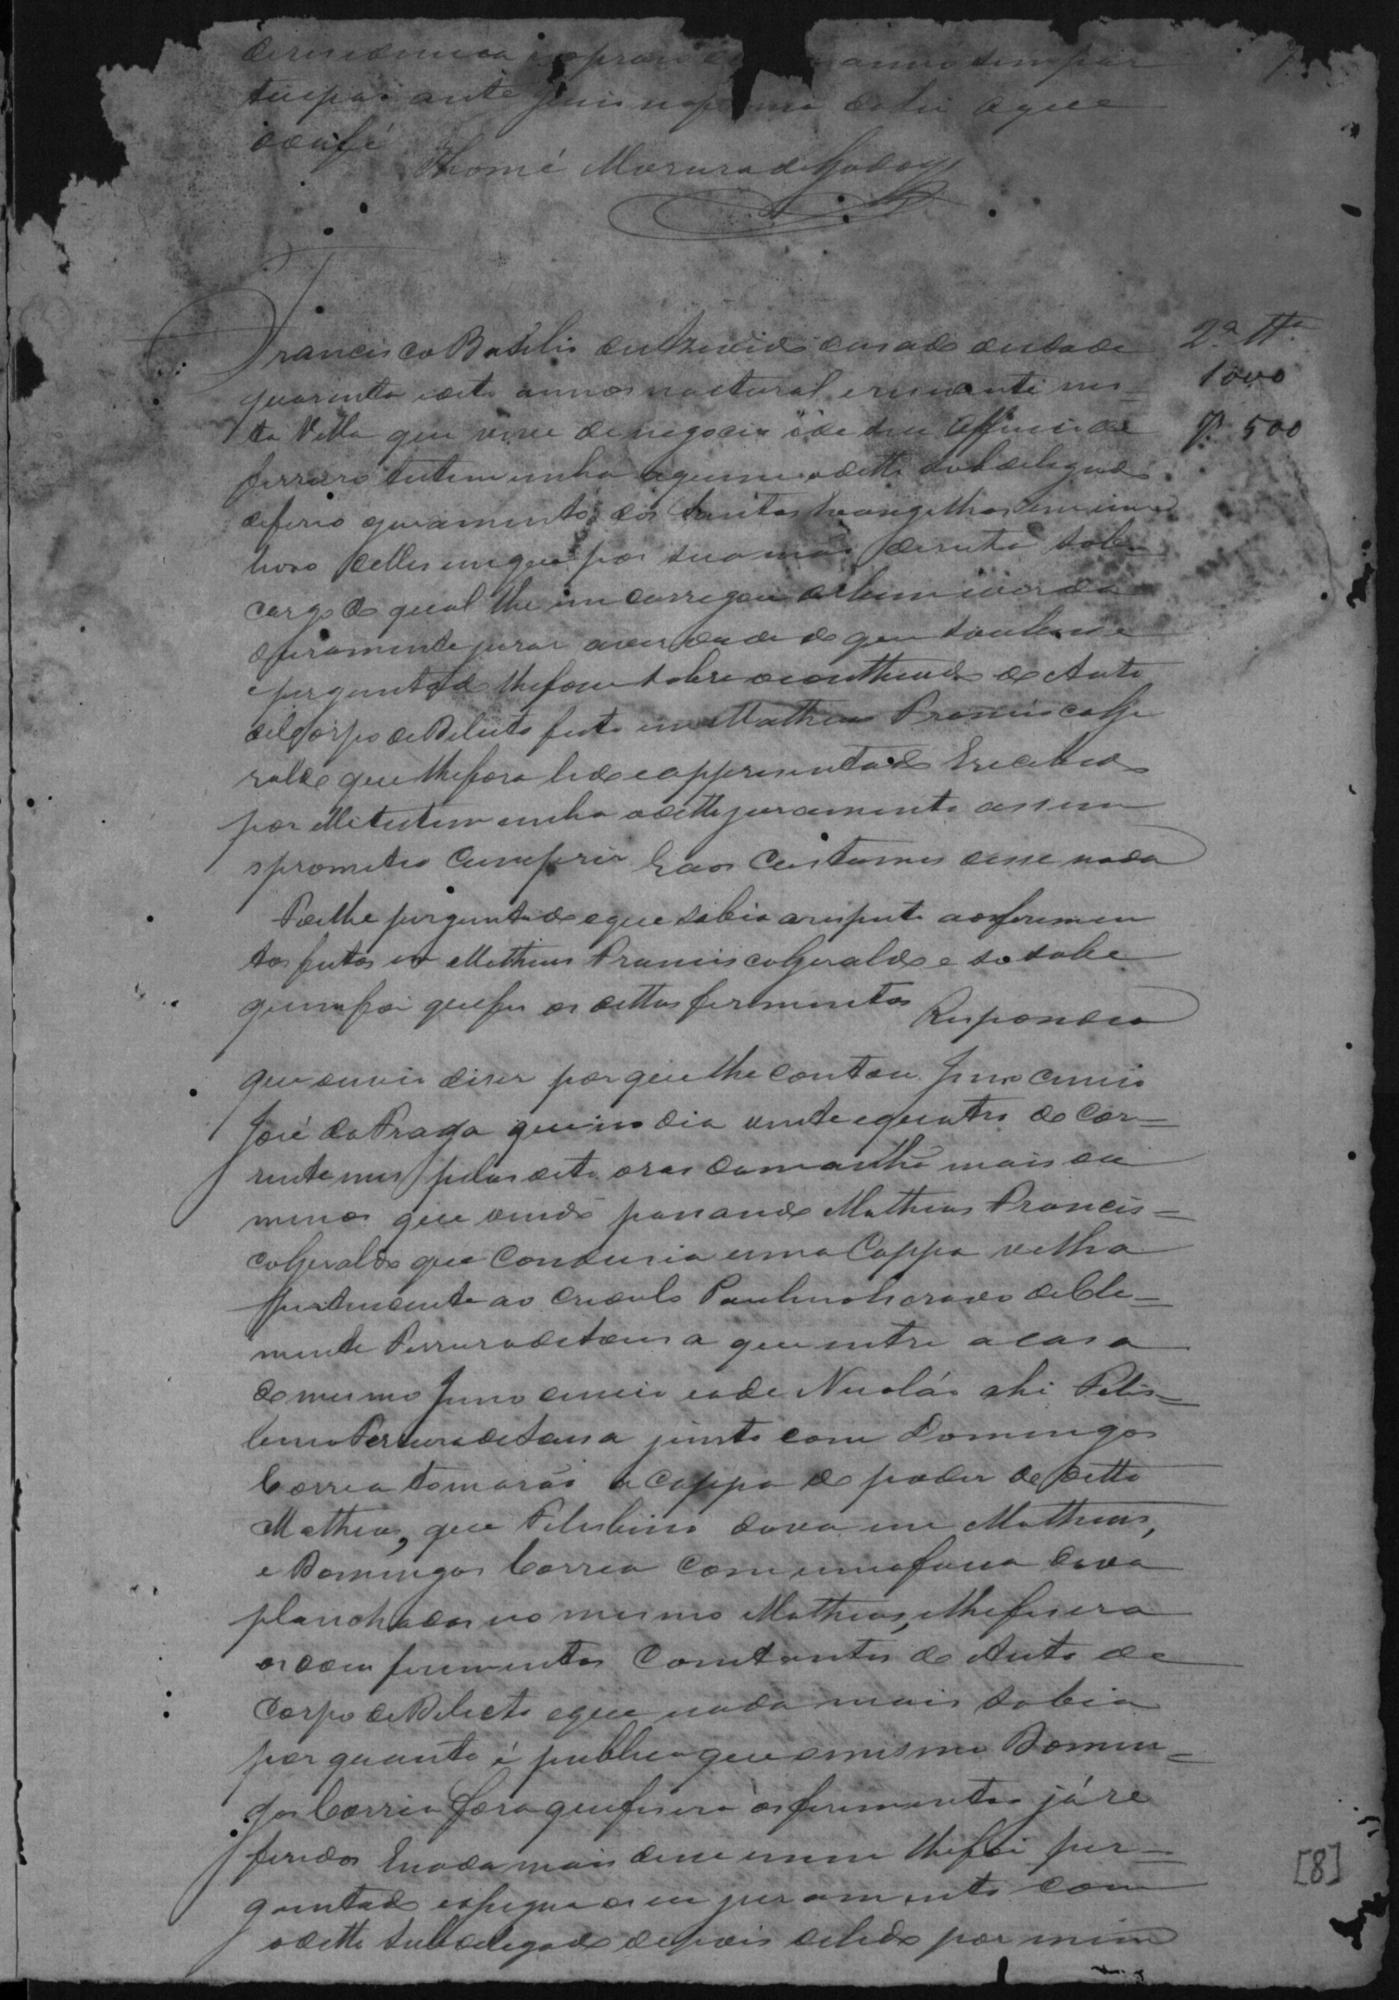 de residencia
testo ante
dou fé
Thomé Moreira de Godoy
Francisco Basilio de Azevedo casado de idade de
quarenta e oito annos natural e residente nes-
ta Villa que vive de negocio e de seu Officio de
ferreiro testemunha a quem o ditto subdelegado
deferio o juramento dos Santos Evangelhos em um
livro delles em que pos sua mão direita sob
cargo do qual lhe encarregou de bem e verda
deiramente jurar a verdade do que soubesse
e perguntado lhe fosse sobre o contheudo do Auto
de Corpo de Delicto feito em Matheus Francisco Ge
raldo que lhe fora lido e appresentado E recebido
por elle testemunha o ditto juramento assim
o prometeo cumprir E aos Custumes disse nada
Foi lhe perguntado o que sabia a respeito aos ferimen
tos feitos em Matheus Francisco Geraldo e se sabe
quem foi que fes os dittos ferimentos Respondeo
que ouvio diser por que lhe contou Innocencio
José da Fraga que no dia vinte e quatro do Cor-
rente mes pelas oito oras da manhã mais ou
menos que vindo passando Matheus Francis-
co Geraldo que Condusia uma Cappa velha
pertencente ao creoulo Paulino escravo de Cle-
mente Ferreira de Sousa que entre a casa
do mesmo Innocencio e a de Nicoláo ahi Felis-
bino Ferreira de Sousa junto com Domingos
Correa tomarão a Cappa do poder do ditto
Matheus, que Felisbino dava em Matheus,
e Domingos Correa com uma faca dava
planchadas no mesmo Matheus, e lhe fisera
os dous ferimentos Constantes do Auto de
Corpo de Delicto e que nada mais sabia
por quanto é publico que o mesmo Domin-
gos Correa fora quem fisera os ferimentos já re
feridos E nada mais disse nem lhe foi per-
guntado e assignou seu juramento com
o ditto subdelegado depois de lido por mim
2ª Tª
1000
P. 500
[8]